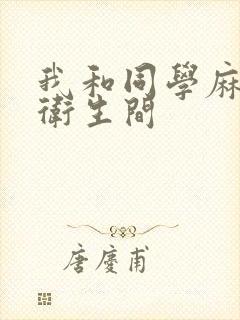 我和同學麻
衛生間
唐慶甫